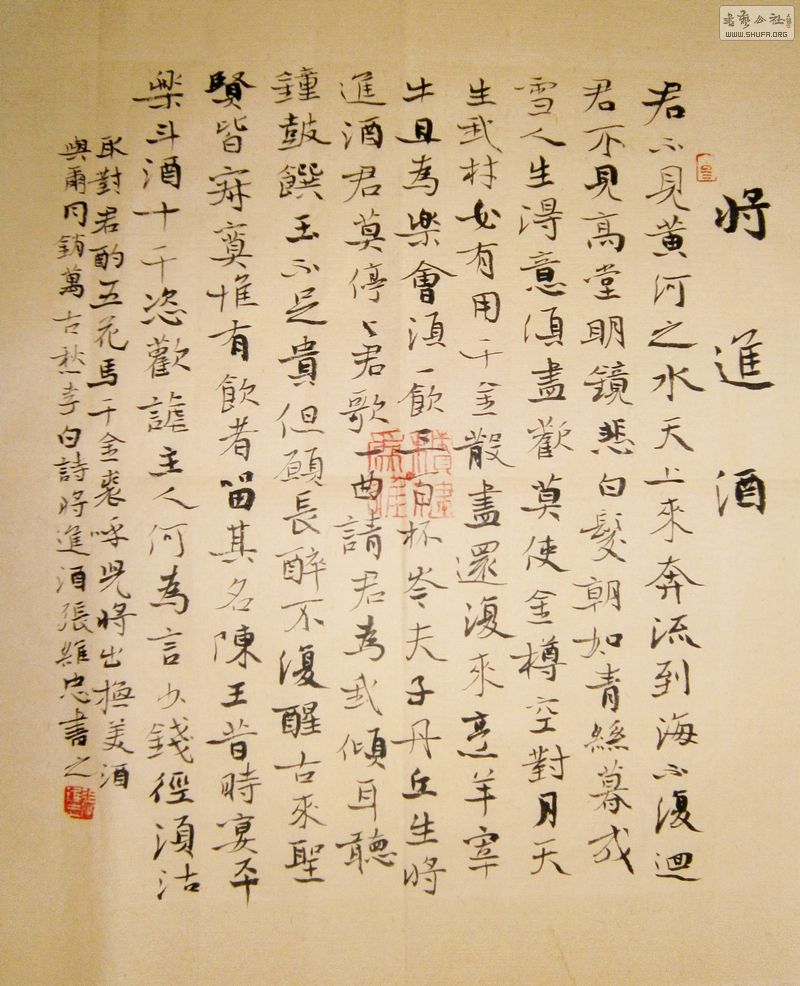 將進酒
君不見黄河之水天上來奔流到海不復迴
君不見高堂明鏡悲白髮朝如青絲暮成
雪人生得意須盡歡莫使金樽空對月天
生我材必有用千金散盡還復來烹羊宰
牛且為樂會須一飲三百杯岑夫子丹丘生將
進酒君莫停々君歌一曲請君為我傾耳聽
鐘鼓饌玉不足貴但願長醉不復醒古來聖
賢皆寂寞惟有飲者留其名陳王昔時宴平
樂斗酒十千恣歡謔主人何為言少錢徑須沽
取對君酌五花馬千金裘呼兒將出換美酒
與爾同銷萬古愁李白詩將進酒張維忠書之
WWW.SHUFA.ORG